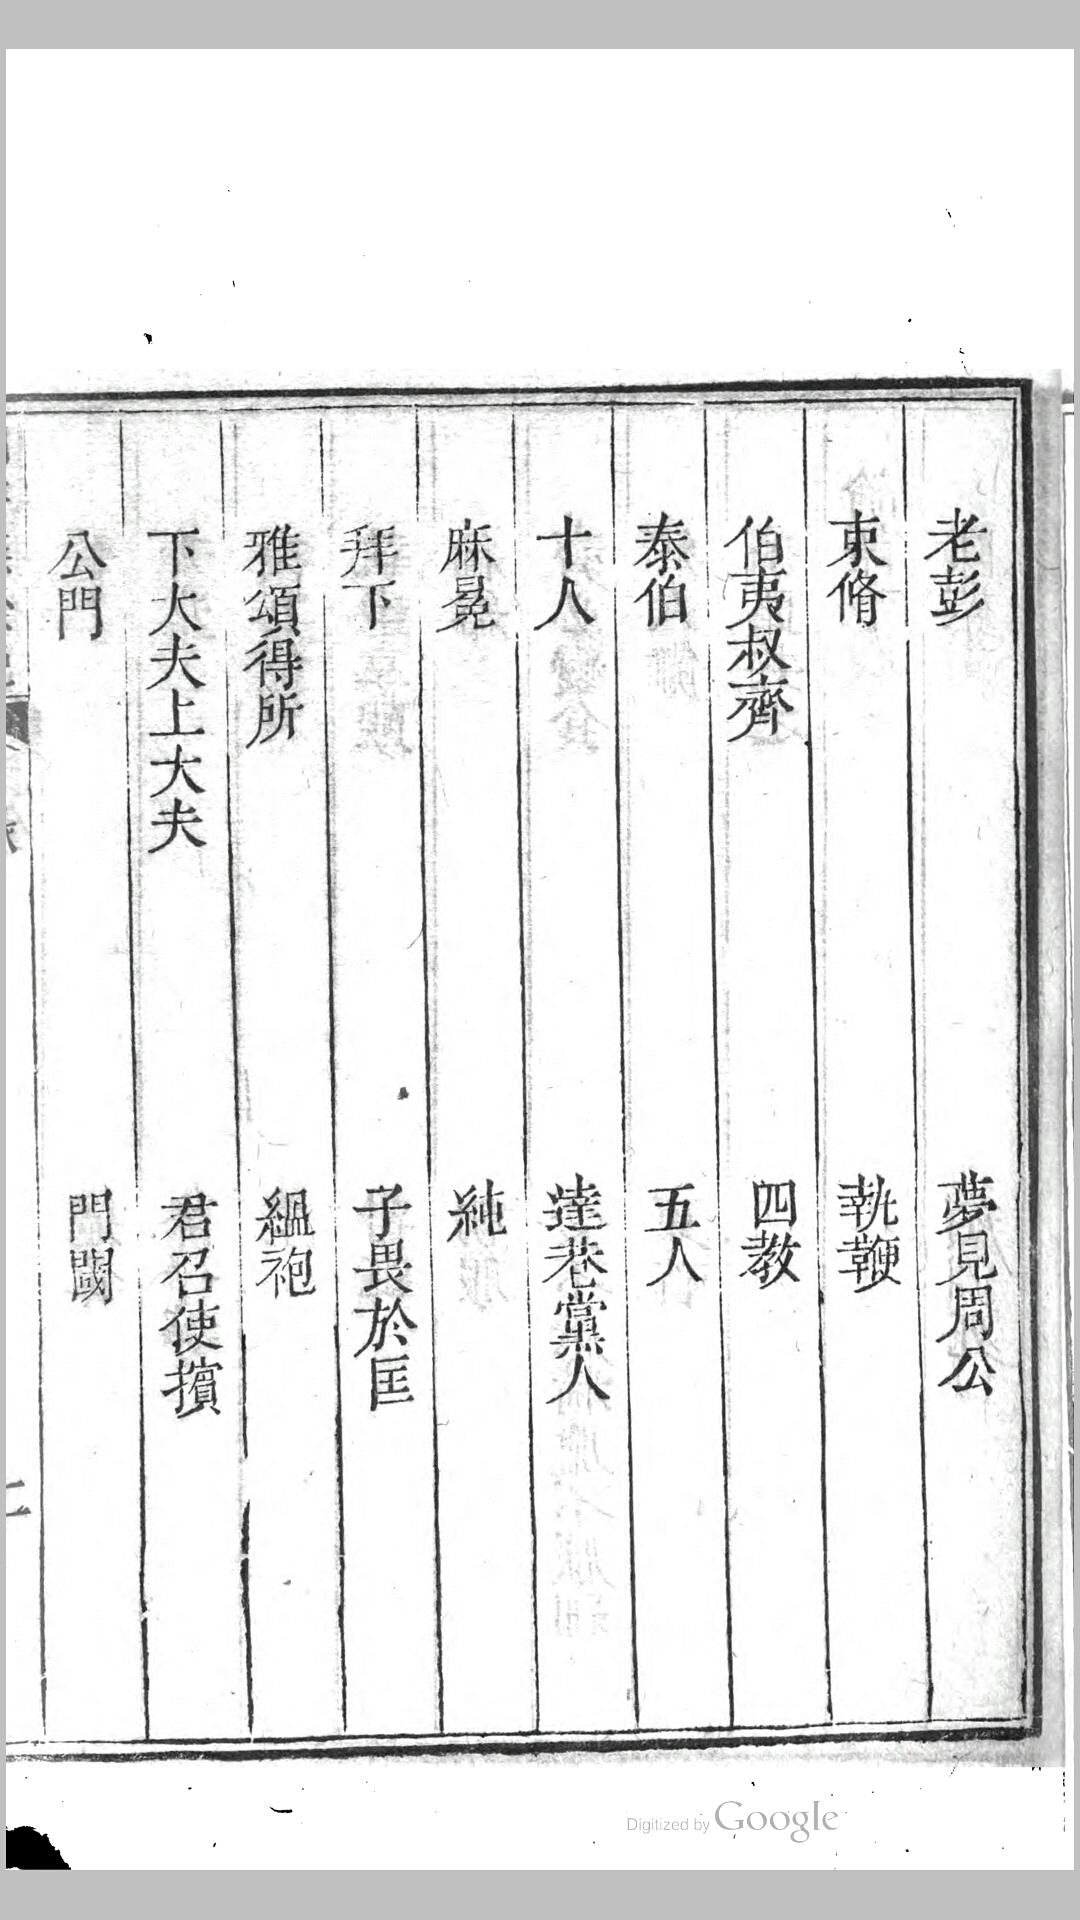 老彭　夢見周公
束脩　執鞭
伯夷叔齊　四教
泰伯　五人
十人　達巷黨人
麻冕　純
拜下　子畏於匡
雅頌得所　縕袍
下大夫上大夫　君召使擯
公門　門閾
Digitized by Google